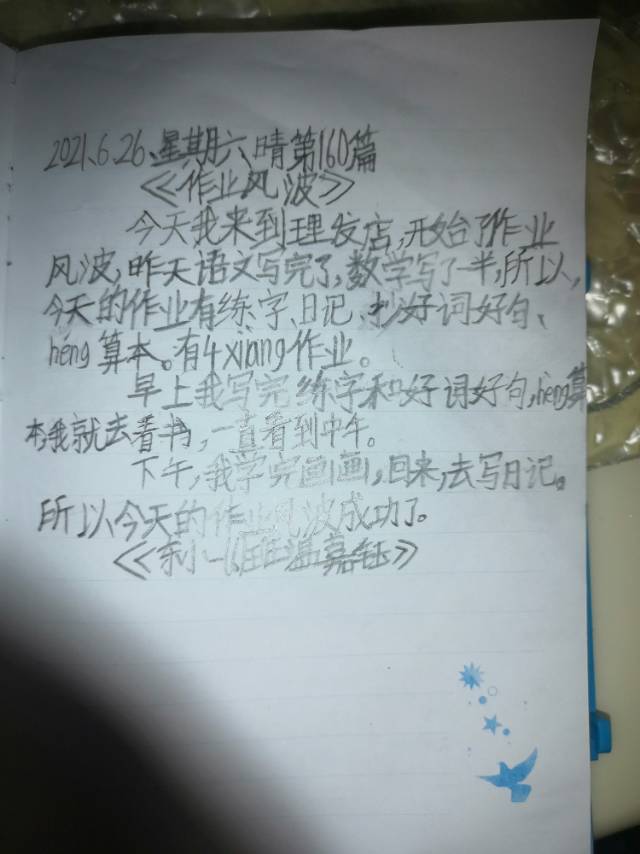 2021、6.26、星期六、晴第160篇
《作业风波》
今天我来到理发店,开始了作业
风波,昨天语文写完了,数学写了一半,所以,
今天的作业有练字、日记、抄好词好句、
héng算本。有4xiàng作业。
早上我写完练字和好词好句,héng算
本,我就去看书,一直看到中午。
下午,我学完画画,回来,去写日记。
所以今天的作业风波成功了。
温嘉钰》